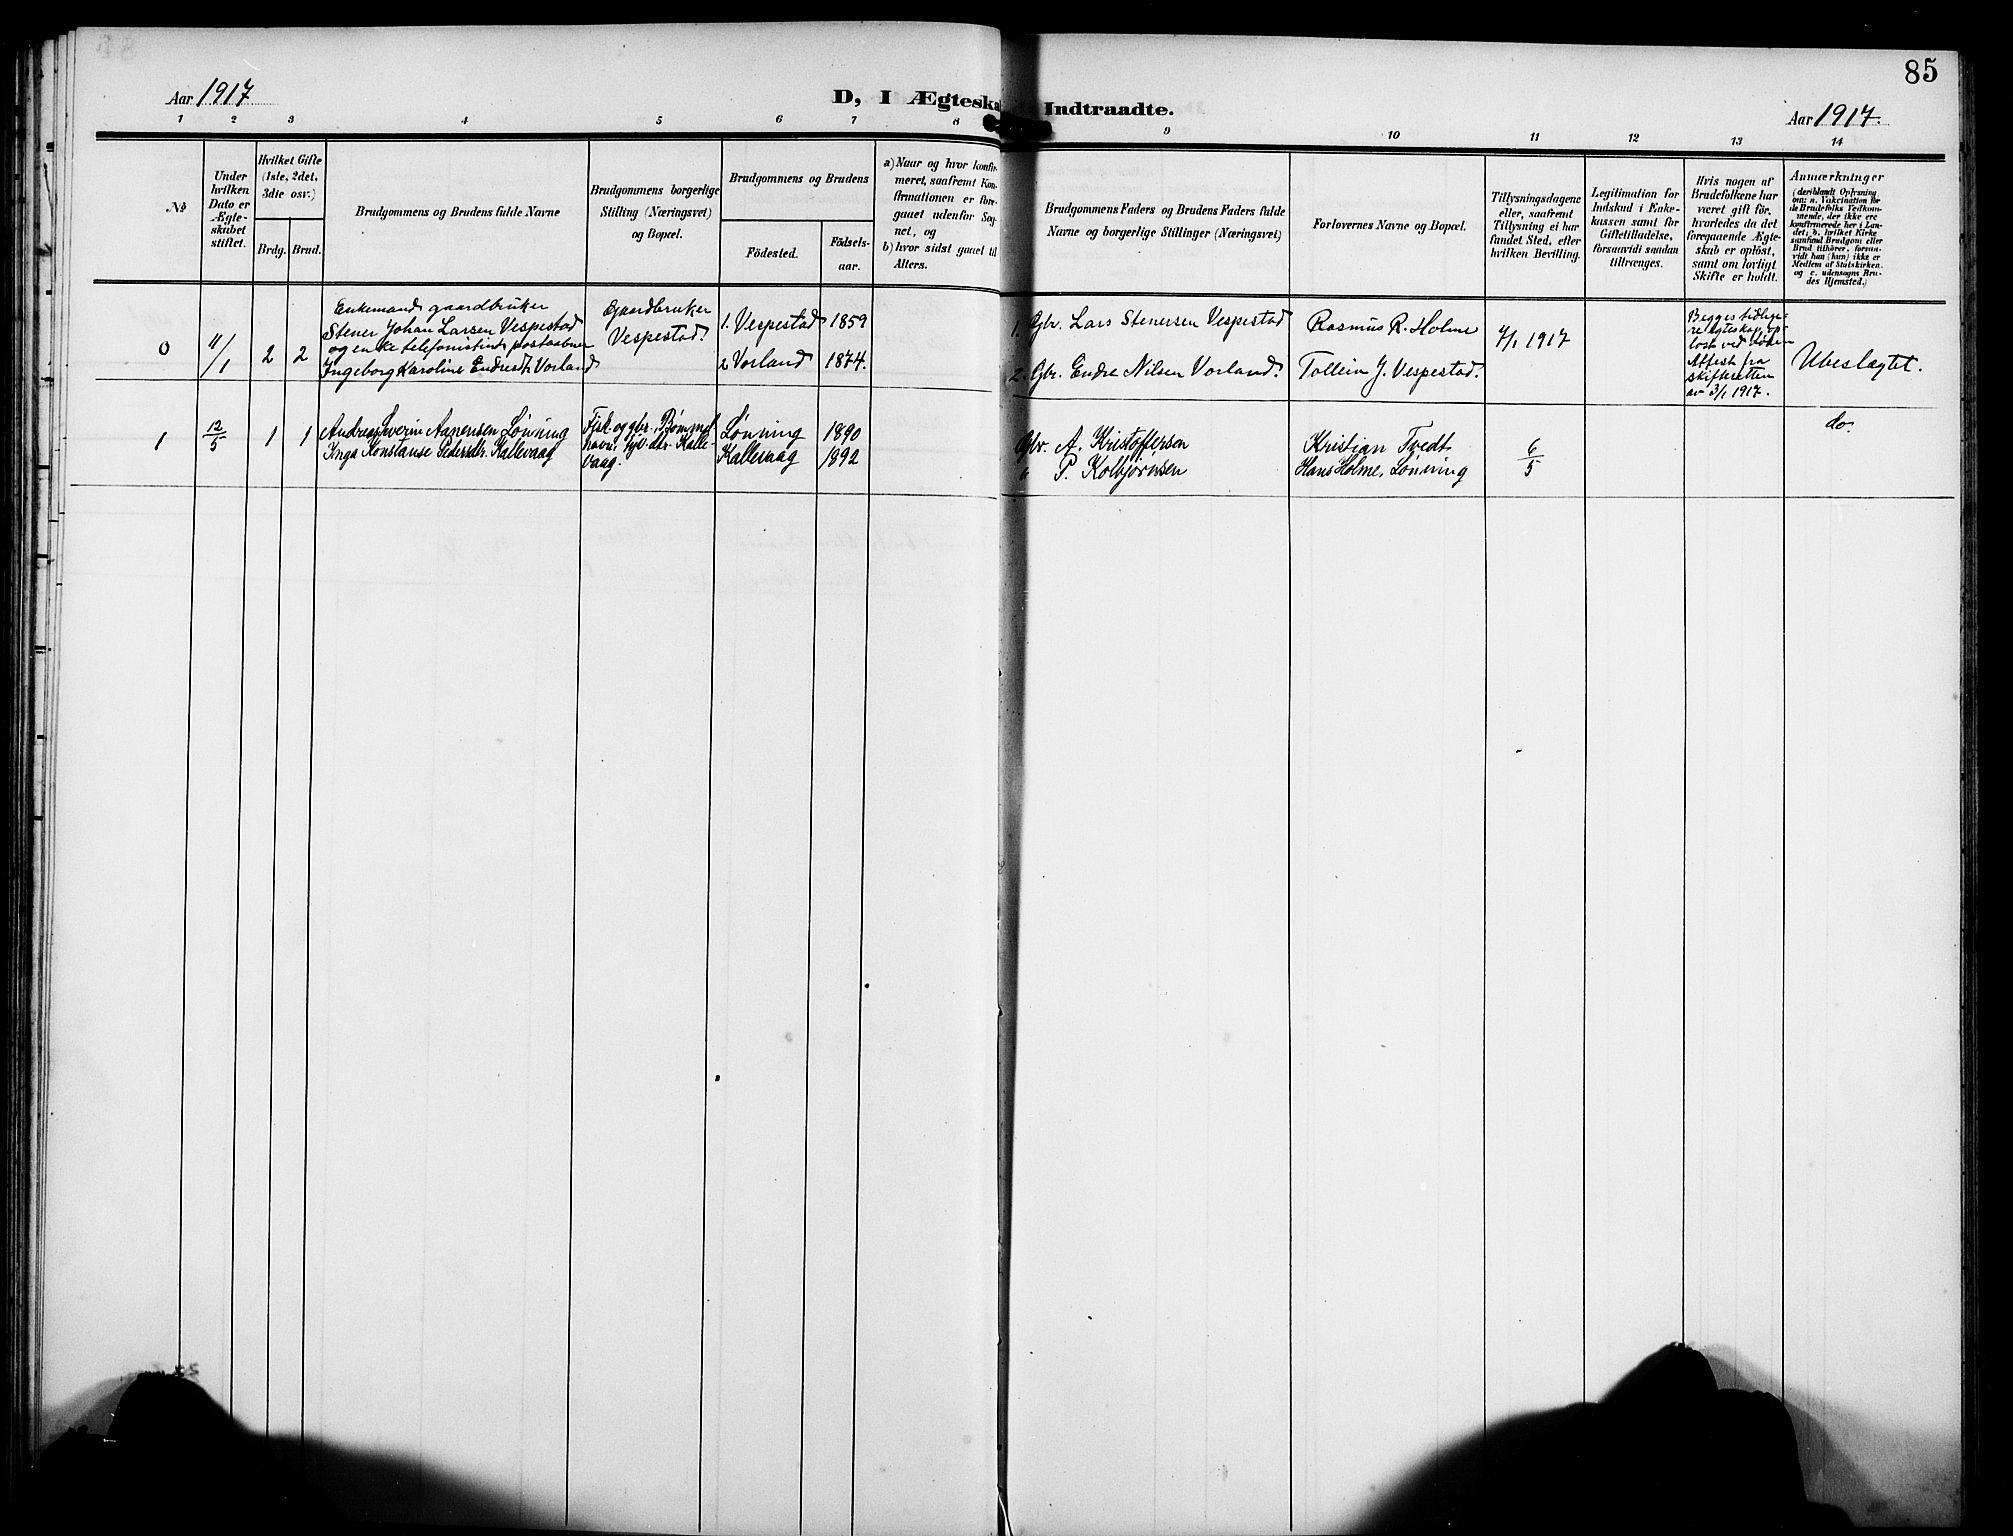 Aar 1917
D, I Ægteska
Indtraadte.
85
Aar 1917.
1 2 3 4 5 6 7 8 9 10 11 12 13 14
№
Under
hvilken
Dato er
Ægte-
skabet
stiftet.
Hvilket Gifte
(1ste, 2det,
3die osv.)
Brdg. Brud.
Brudgommens og Brudens fulde Navne
Brudgommens borgerlige
Stilling (Næringsvei)
og Bopæl.
Brudgommens og Brudens
Födested.
Födsels-
aar.
a) Naar og hvor konfir-
meret, saafremt Kon-
firmationen er fore-
gaaet udenfor Sog-
net, og
b) hvor sidst gaaet til
Alters.
Brudgommens Faders og Brudens Faders fulde
Navne og borgerlige Stillinger (Næringsvei)
Forlovernes Navne og Bopæl.
Tillysningsdagene
eller, saafremt
Tillysning ei har
fundet Sted, efter
hvilken Bevilling.
Legitimation for
Indskud i Enke-
kassen samt for
Giftetilladelse,
forsaavidt saadan
tiltrænges.
Hvis nogen af
Brudefolkene har
været gift för,
hvorledes da det
foregaaende Ægte-
skab er oplöst,
samt om lovligt
Skifte er holdt.
Anmærkninger
(deriblandt Oplysning
om: a. Vakcination for
de Brudefolks Vedkom-
mende, der ikke ere
konfirmerede her i Lan-
det; b. hvilket Kirke
samfund Brudgom eller
Brud tilhörer, forsaa-
vidt han (hun) ikke er
Medlem af Statskirken.
og c. udensogns Bru-
des Hjemsted.)
0 11/1 2 2
Enkemand gaardbruker
Stener Johan Larsen Vespestad
og enke telefonistinde postaabner
Ingeborg Karoline Endresdt. Vorland
Gaardbruker
Vespestad.
1. Vespestad 1859
2 Vorland 1874.
1. Gbr. Lars Stenersen Vespestad
2. Gbr. Endre Nilsen Vorland.
Rasmus R. Holme
Tollein J. Vespestad.
7/1 1917
Begges tidlige-
re egteskap op-
løst ved døden
Attest fra
skifteretten
av 3/1 1917.
Ubeslægtet.
1 12/5 1 1
Andreas Severin Aanensen Lønning
Inga Konstanse Pedersdtr. Kallevaag
Fisk. og gbr. Bømmel
havn, gjb. dtr. Kalle
vaag.
Lønning 1890
Kallevaag 1892
Gbr. A. Kristoffersen
" P. Kolbjørnsen
Kristian Tvedt
Hans Holme, Lønning
6/5
do.